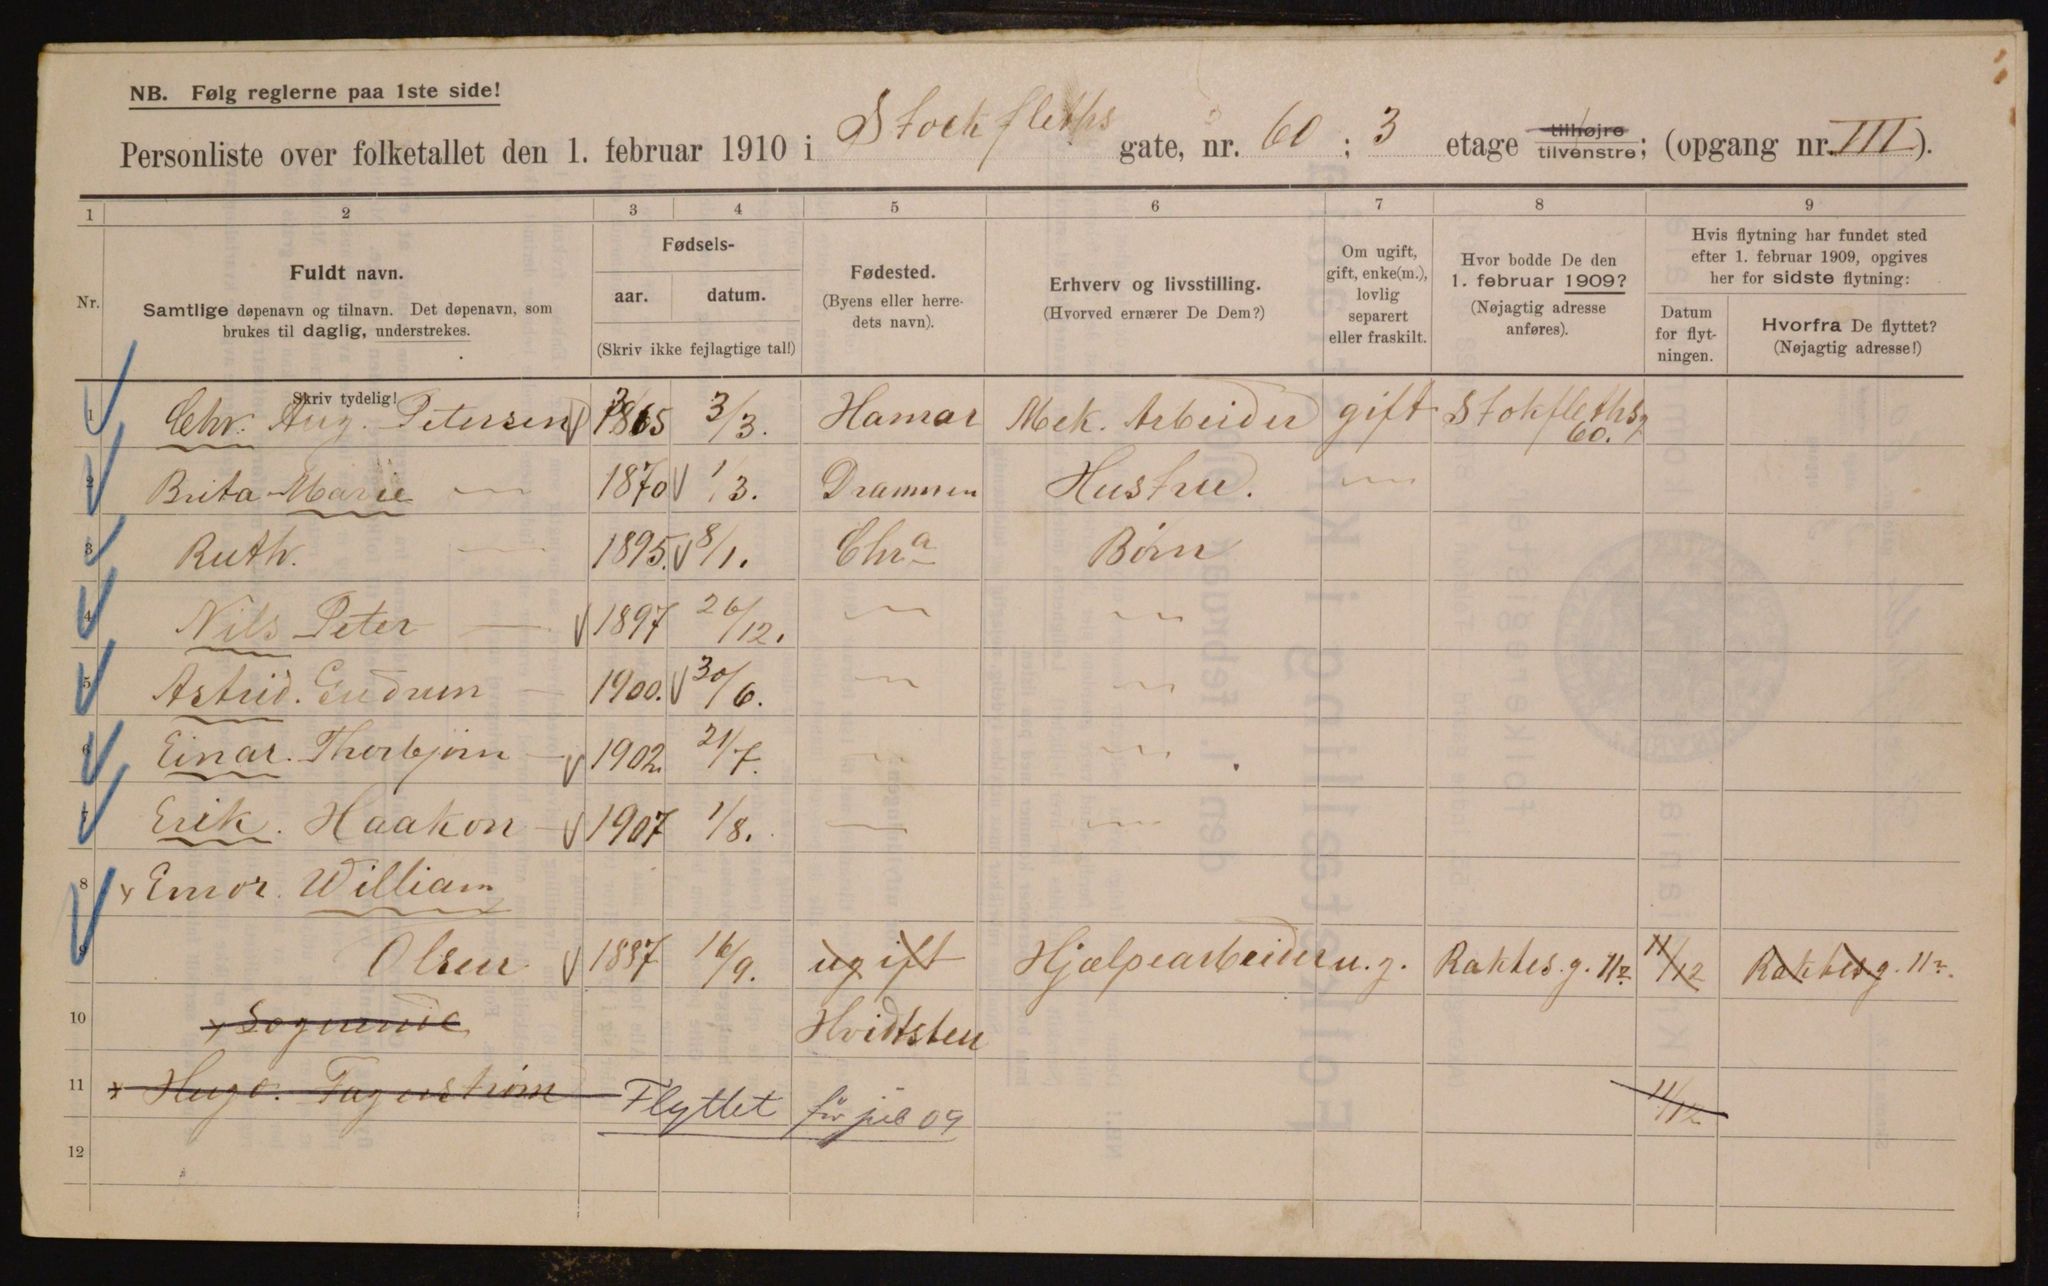 NB. Følg reglerne paa 1ste side!
Personliste over folketallet den 1. februar 1910 i Stockfleths gate, nr. 60 ; 3 etage tilhøjre tilvenstre; (opgang nr. III).
1 2 3 4 5 6 7 8 9
Nr.
Fuldt navn.
Samtlige døpenavn og tilnavn. Det døpenavn, som
brukes til daglig, understrekes.
Skriv tydelig!
Fødsels-
aar. datum.
(Skriv ikke fejlagtige tal!)
Fødested.
(Byens eller herre-
dets navn).
Erhverv og livsstilling.
(Hvorved ernærer De Dem?)
Om ugift,
gift, enke(m.),
lovlig
separert
eller fraskilt.
Hvor bodde De den
1. februar 1909?
(Nøjagtig adresse
anføres).
Hvis flytning har fundet sted
efter 1. februar 1909, opgives
her for sidste flytning:
Datum
for flyt-
ningen.
Hvorfra De flyttet?
(Nøjagtig adresse!)
1 Chr. Aug. Petersen 1865 3/3. Hamar Mek. Arbeider gift Stokflethsg
60.
2 Brita Marie — 1870 1/3. Drammen Hustru. —
3 Ruth. — 1895. 8/1. Chra Børn
4 Nils Peter — 1897 26/12. — —
5 Astrid. Gudrun — 1900. 30/6. — —
6 Einar. Thorbjørn — 1902. 21/7. — —
7 Erik. Haakon — 1907 1/8. — —
8 x William
9 Olsen 1887 16/9. ugift Hjælpearbeider u. g. Rakkes. g. 11 11/12 Rakkes g. 11
10 Hvidtsten
11 x Hugo. Fagerstrøm Flyttet før jul 09 11/12
12